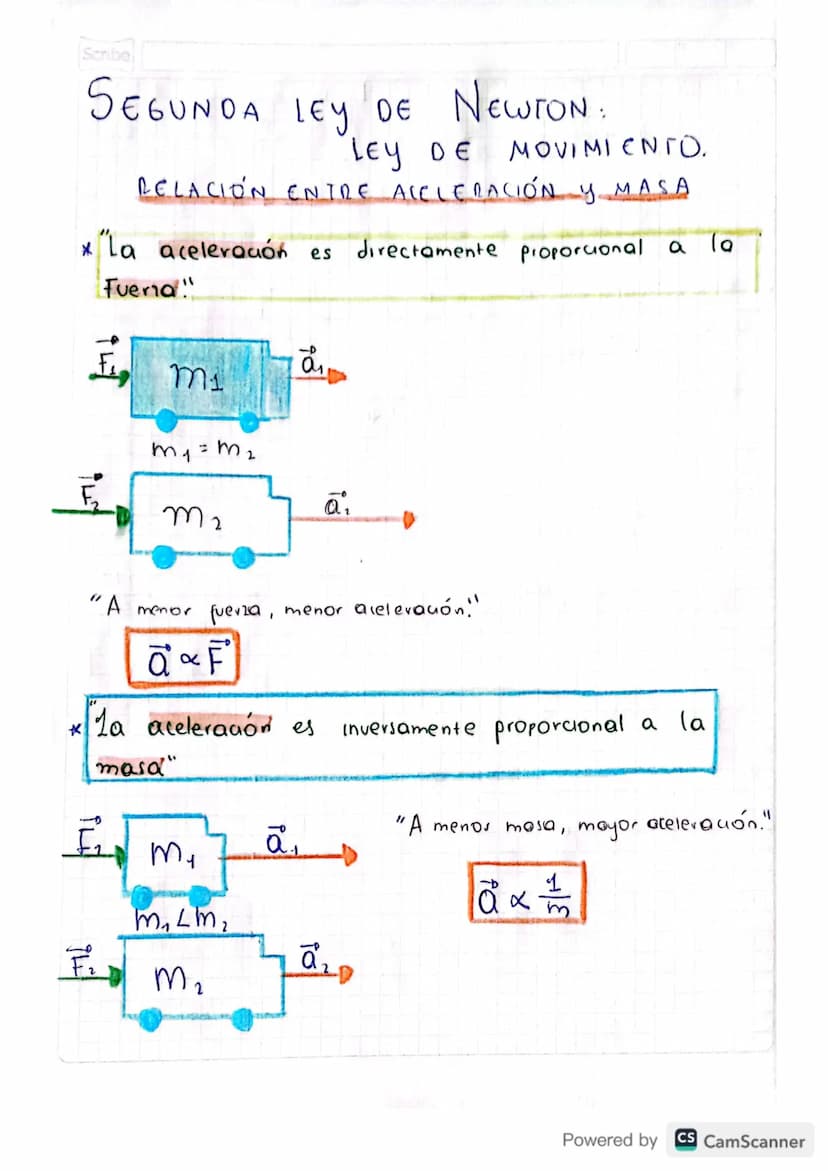 Scribe
SEGUNDA LEY DE NEWTON:
LEY DE MOVIMIENTO.
RELACIÓN ENTRE ACELERACIÓN Y MASA
* "La aceleración es directamente proporcional a la
Fuerza."
F₁
m1
a₁
m₁ = m₂
F₂
m₂
a₂
"A menor fuerza, menor aceleración."
a ∝ F
* "La aceleración es inversamente proporcional a la
masa"
F₁
m₁
a₁
"A menos masa, mayor aceleración."
a ∝ 1/m
m₁ < m₂
F₂
m₂
a₂
Powered by CS CamScanner